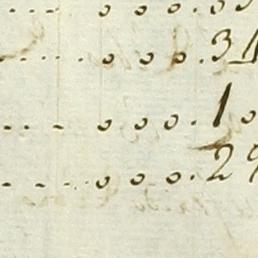 .... o o o .
..... o o o . 34
.... o o o . 1 0
...... o o o . 29